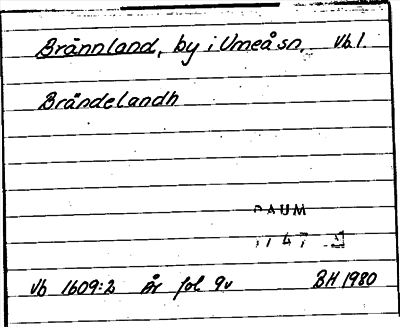 Brännland, by i Umeå sn. Vb l.
Brändelandh
DAUM
Vb 1609:2 år fol 9v BH 1980